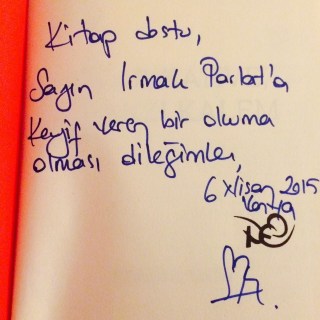 Kitap dostu,
Sayın Irmak Parlat'a
Keyif veren bir okuma
olması dileğimle,
6 Nisan 2015
Konya